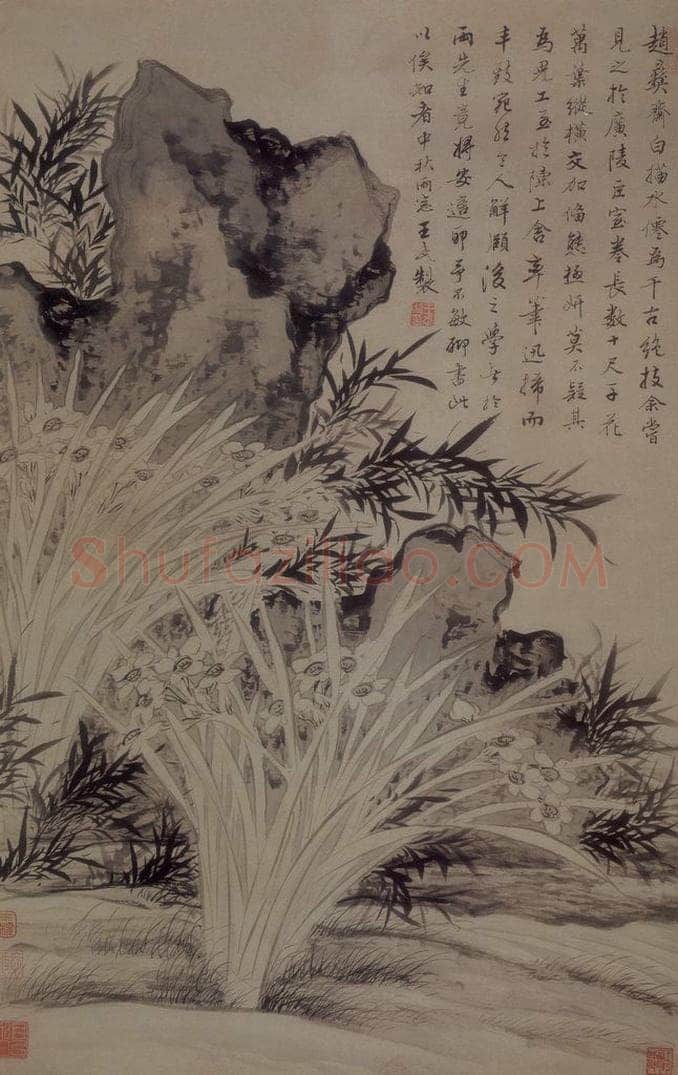 趙彝齋白描水僊為千古絕技余嘗
見之於廣陵巨室卷長數十尺千花
萬葉縱橫交加偹態極妍莫不疑其
為鬼工至於陳上舍率筆迅掃而
丰致宛然令人解頤後之學者於
兩先生竟將安適即予不敏聊書此
以俟知者中秋雨窓王武製
Shufaziliao.COM